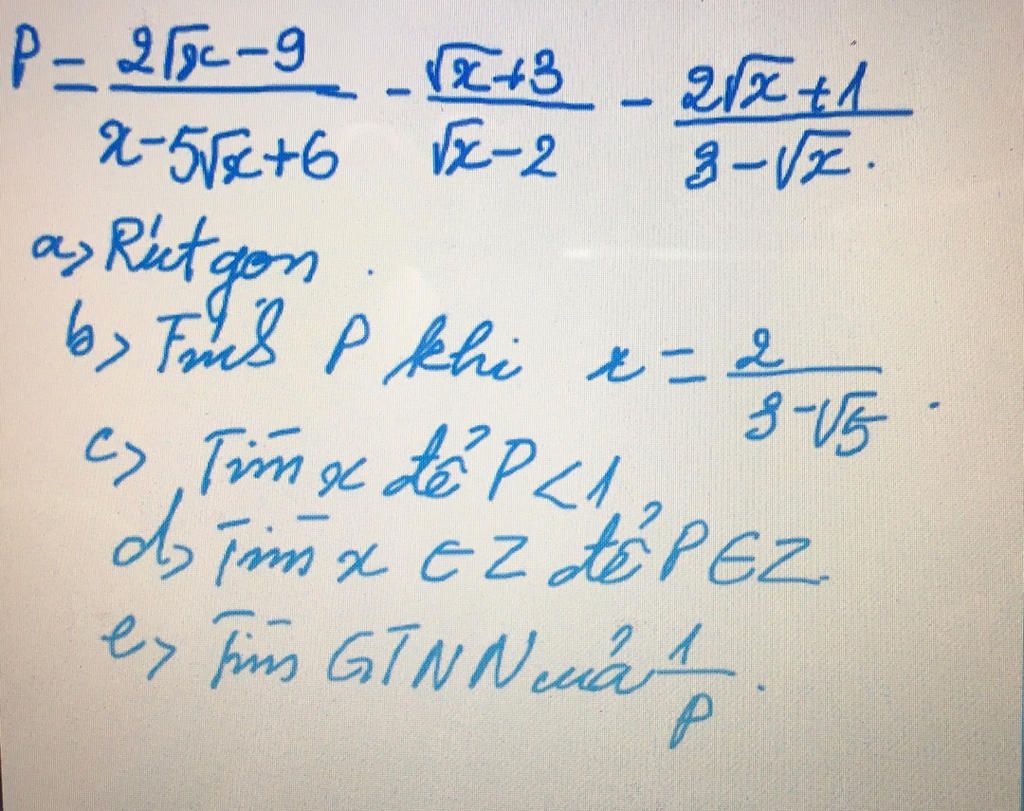 P = \frac{2\sqrt{x} - 9}{x - 5\sqrt{x} + 6} - \frac{\sqrt{x} + 3}{\sqrt{x} - 2} - \frac{2\sqrt{x} + 1}{3 - \sqrt{x}}.
a> Rút gọn.
b> Tính P khi x = \frac{2}{3 - \sqrt{5}}.
c> Tìm x để P < 1
d> Tìm x ∈ Z để P ∈ Z.
e> Tìm GTNN của \frac{1}{P}.